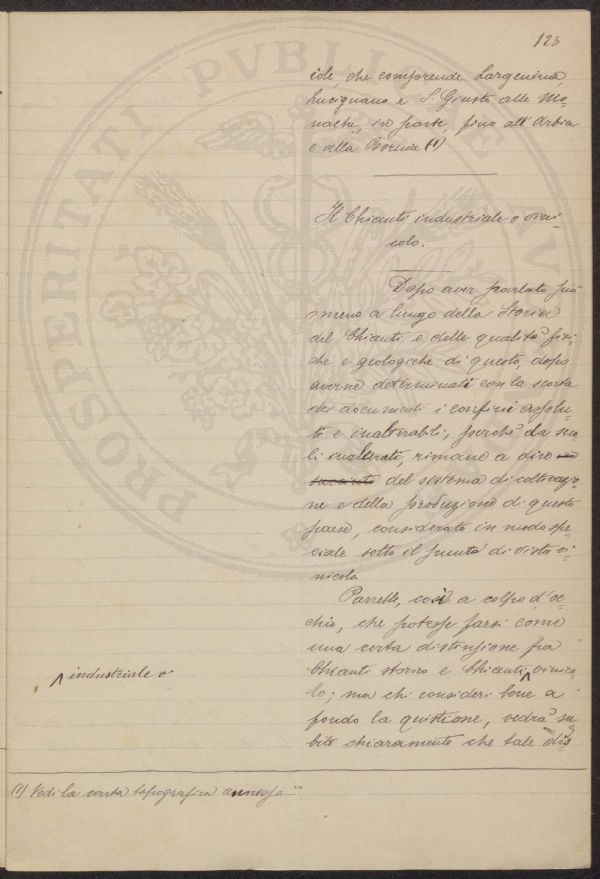 123
cole, che comprende Largenina
Lucignano e S. Giusto alle Mo=
nache, in parte, fino all'Arbia
e alla Bornia (1)
Il Chianti industriale o vini=
colo.
Dopo aver parlato più
o meno a lungo della Storia
del Chianti e delle qualità fisi=
che e geologiche di questo, dopo
averne determinati con la scorta
dei documenti i confini assolu=
ti e inalterabili, perchè da se=
li inalterati, rimane a dire
del sistema di coltivazio=
ne e della produzione di questo
paese, considerato in modo spe=
ciale sotto il punto di vista vi=
nicolo.
Parrebbe, così a colpo d'oc=
chio, che potesse farsi come
una certa distinzione fra
Chianti storico e Chianti, vinico=
industriale o
lo; ma chi consideri bene a
fondo la quistione, vedrà su=
bito chiaramente che tale dis=
(1) Vedi la carta topografica annessa
PROSPERITATI PVBLICAE AV